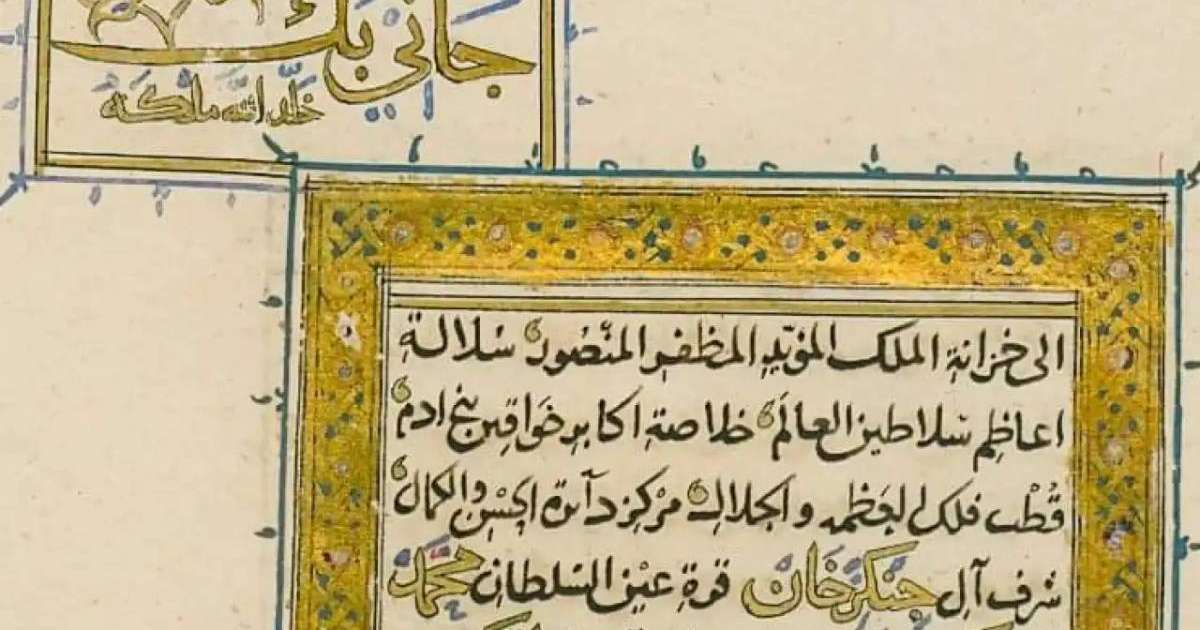 جاني بك
خلد الله ملكه
الى خزانة الملك المؤيد المظفر المنصور سلالة
اعاظم سلاطين العالم خلاصة اكابر خواقين بني ادم
قطب فلك العظمه والجلال مركز دآئرة الحسن والكمال
شرف آل جنكز خان قوة عين السلطان محمد